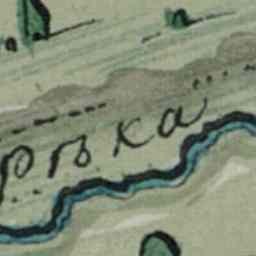 Рѣка